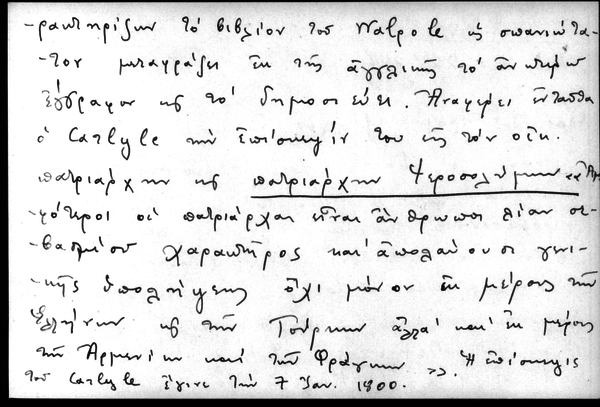 -ρακτηρίζων τὸ βιβλίον τοῦ Walpole ὡς σπανιώτα-
-τον μεταφράζει ἐκ τῆς ἀγγλικῆς τὸ ἀνωτέρω
ἔγγραφον κ̀ τὸ δημοσιεύει. Ἀναφέρει ἐνταῦθα
ὁ Carlyle τὴν ἐπίσκεψίν του εἰς τὸν οἰκ.
πατριάρχην κ̀ πατριάρχην Ἱεροσολύμων "Ἀμ
φότεροι οἱ πατριάρχαι εἶναι ἄνθρωποι λίαν σε-
-βασμίου χαρακτῆρος καὶ ἀπολαύουσι γενι-
-κῆς ὑπολήψεως ὄχι μόνον ἐκ μέρους τῶν
Ἑλλήνων κ̀ τῶν Τούρκων ἀλλὰ καὶ ἐκ μέρους
τῶν Ἀρμενίων καὶ τῶν Φράγκων ». Ἡ ἐπίσκεψις
τοῦ Carlyle ἔγινε τὴν 7 Ἰαν. 1800.